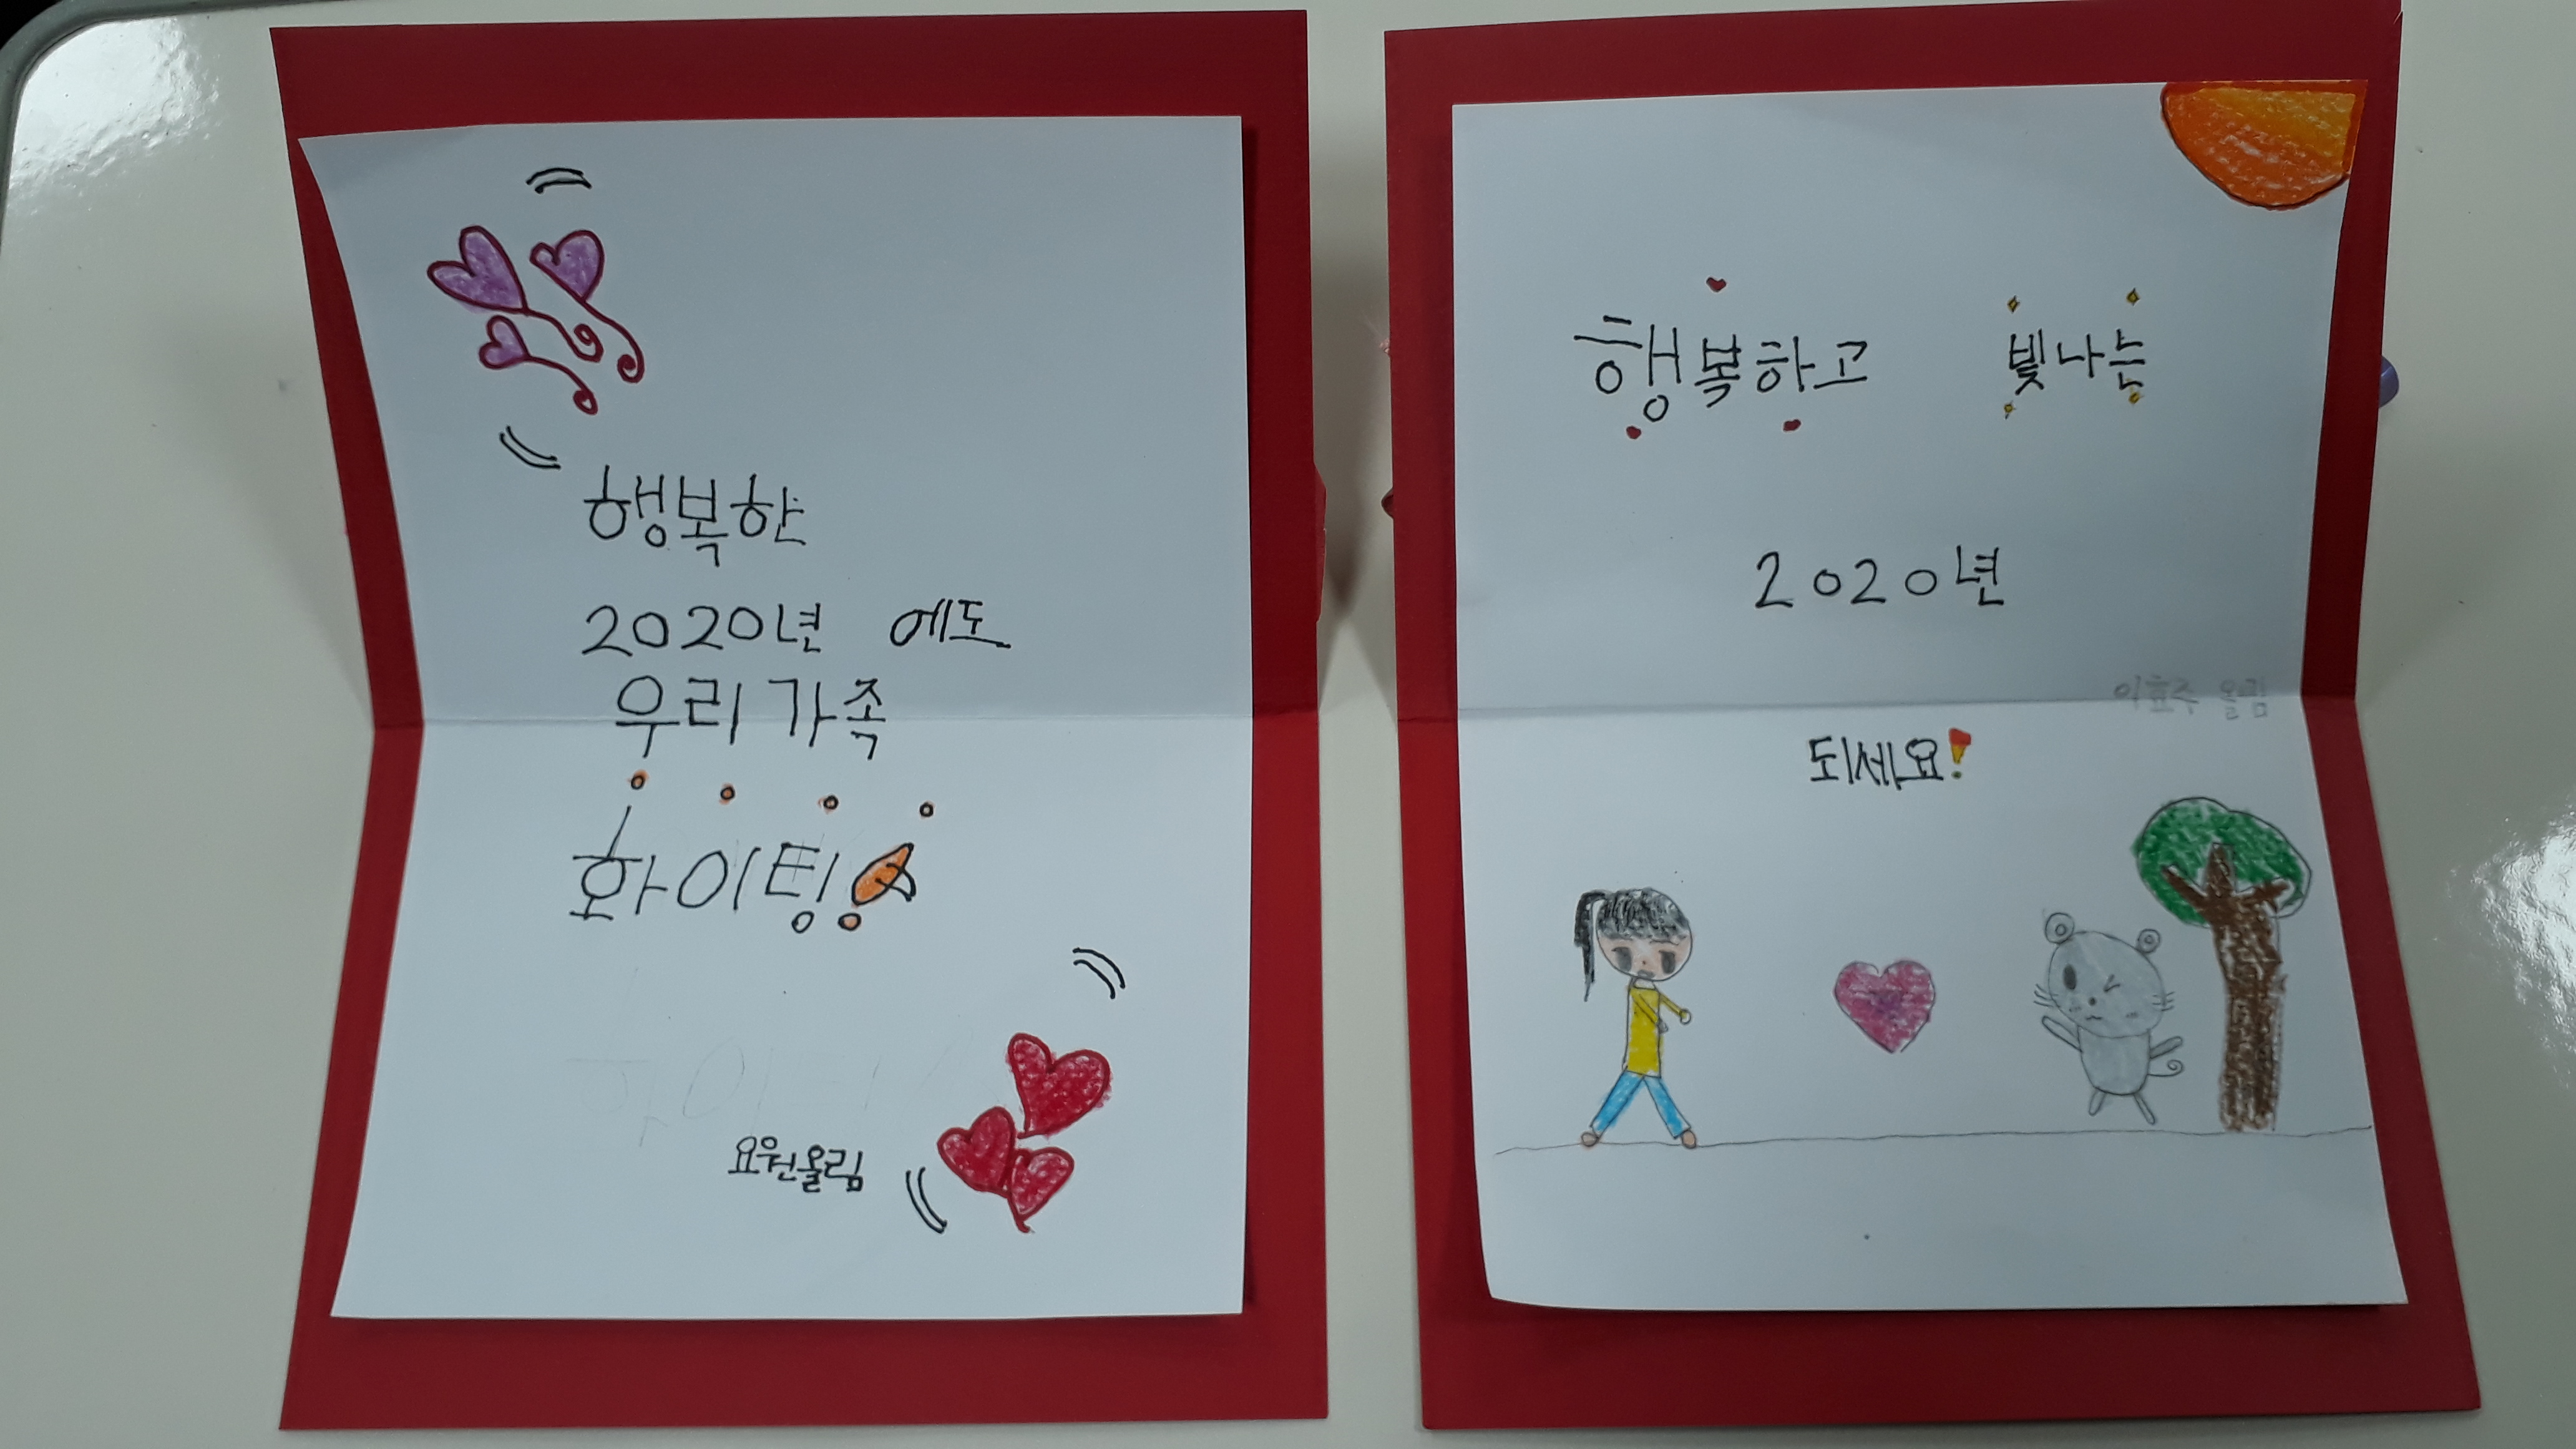 행복한
2020년 에도
우리 가족
화이팅!
요원올림
행복하고 빛나는
2020년
이효주 올림
되세요!